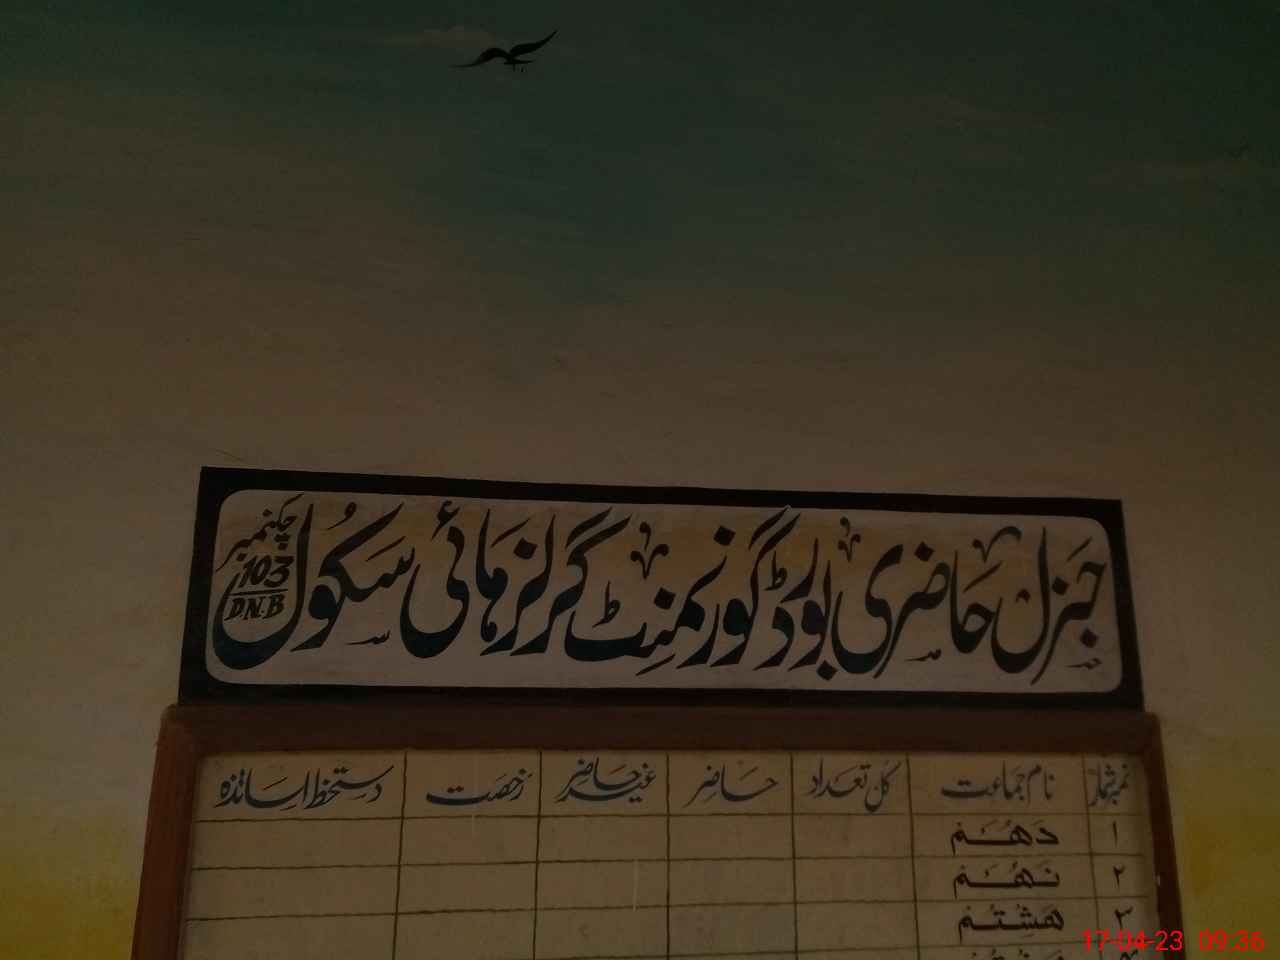 جنرل حاضری بورڈ گورنمنٹ گرلز ہائی سکول چکنمبر 103 D.N.B
نمبرشمار نام جماعت کل تعداد حاضر غیر حاضر رخصت دستخط اساتذہ
۱ دھم
۲ نھم
۳ ھشتم
17-04-23 09:36